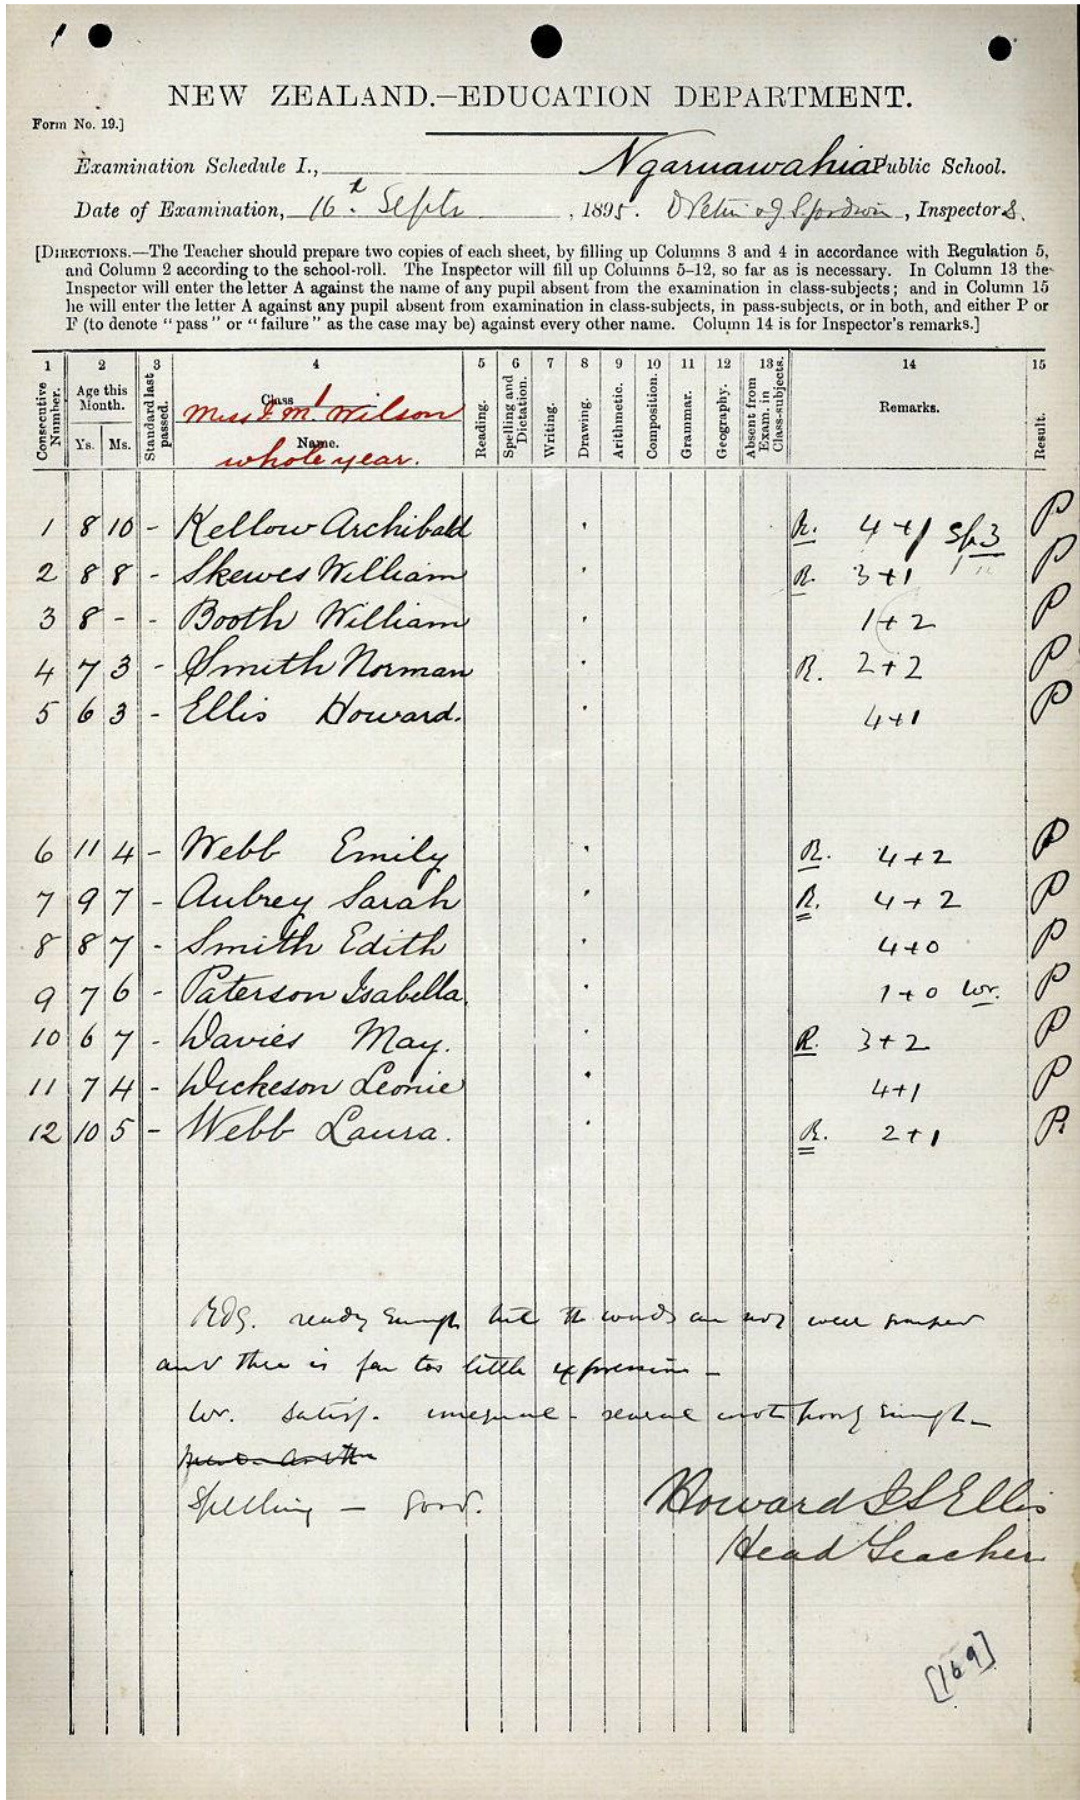 NEW ZEALAND.—EDUCATION DEPARTMENT.
Form No. 19.]
Examination Schedule I., Ngaruawahia Public School.
Date of Examination, 16th Septr, 1895. , Inspectors.
[DIRECTIONS.—The Teacher should prepare two copies of each sheet, by filling up Columns 3 and 4 in accordance with Regulation 5,
and Column 2 according to the school-roll. The Inspector will fill up Columns 5–12, so far as is necessary. In Column 13 the
Inspector will enter the letter A against the name of any pupil absent from the examination in class-subjects; and in Column 15
he will enter the letter A against any pupil absent from examination in class-subjects, in pass-subjects, or in both, and either P or
F (to denote "pass" or "failure" as the case may be) against every other name. Column 14 is for Inspector's remarks.]
1 2 3 4 5 6 7 8 9 10 11 12 13 14 15
Consecutive Number.
Age this Month.
Ys. Ms.
Standard last passed.
Class 1
Miss Wilson
Name.
whole year.
Reading.
Spelling and Dictation.
Writing.
Drawing.
Arithmetic.
Composition.
Grammar.
Geography.
Absent from Exam. in Class-subjects.
Remarks.
Result.
1 8 10 - Kellow Archibald R. 4+1 Sp.3 P
2 8 8 - Skewes William R. 3+1 P
3 8 - - Booth William 1+2 P
4 7 3 - Smith Norman R. 2+2 P
5 6 3 - Ellis Howard. 4+1 P
6 11 4 - Webb Emily R. 4+2 P
7 9 7 - Aubrey Sarah R. 4+2 P
8 8 7 - Smith Edith 4+0 P
9 7 6 - Paterson Isabella. 1+0 Wr. P
10 6 7 - Davies May. R. 3+2 P
11 7 4 - Wickeson Leonie 4+1 P
12 10 5 - Webb Laura. R. 2+1 P.
Rdg. ready enough but the words are not well
and there is far too little expression -
Wr. satisf. unequal - several not enough -
Spelling - good.
Howard Ellis
Head Teacher
[169]